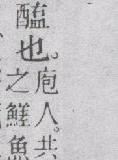 醢也。
庖人。共
之䱹魚